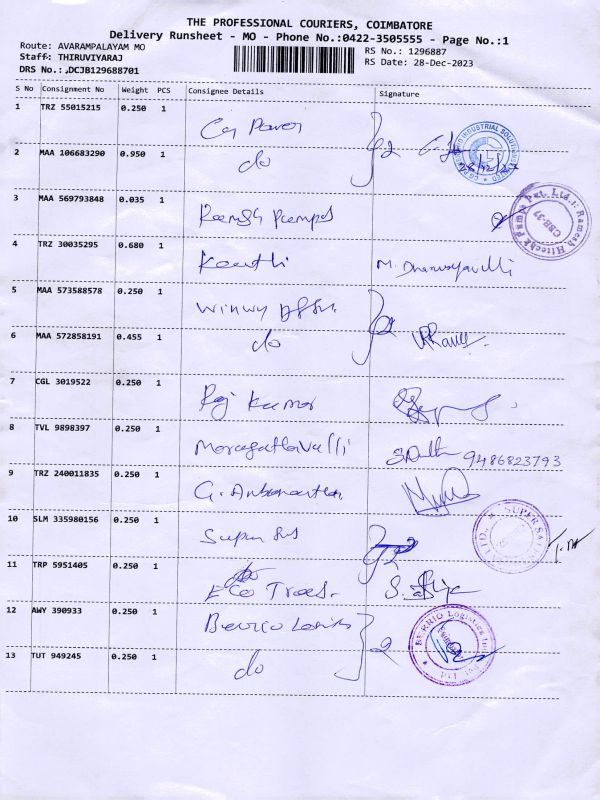 THE PROFESSIONAL COURIERS, COIMBATORE
Delivery Runsheet - MO - Phone No.:0422-3505555 - Page No.:1
Route: AVARAMPALAYAM MO
Staff: THIRUVIYARAJ
DRS No.: ,DCJB129688701
RS No.: 1296887
RS Date: 28-Dec-2023
S No Consignment No Weight PCS Consignee Details Signature
1 TRZ 55015215 0.250 1 Cg Power
2 MAA 106683290 0.950 1 do
3 MAA 569793848 0.035 1 Ramesh Pumps
Pumps Pvt. Ltd.; Ramesh Hitech
CBE-37
4 TRZ 30035295 0.680 1 Keerthi M.
5 MAA 573588578 0.250 1
6 MAA 572858191 0.455 1 do
7 CGL 3019522 0.250 1 Raj Kumar
8 TVL 9898397 0.250 1 Maragathavalli 9486823793
9 TRZ 240011835 0.250 1 G.
10 SLM 335980156 0.250 1 Super
SUPER
11 TRP 5951405 0.250 1 Eco
12 AWY 390933 0.250 1 2
BERRIO Logistics
13 TUT 949245 0.250 1 do